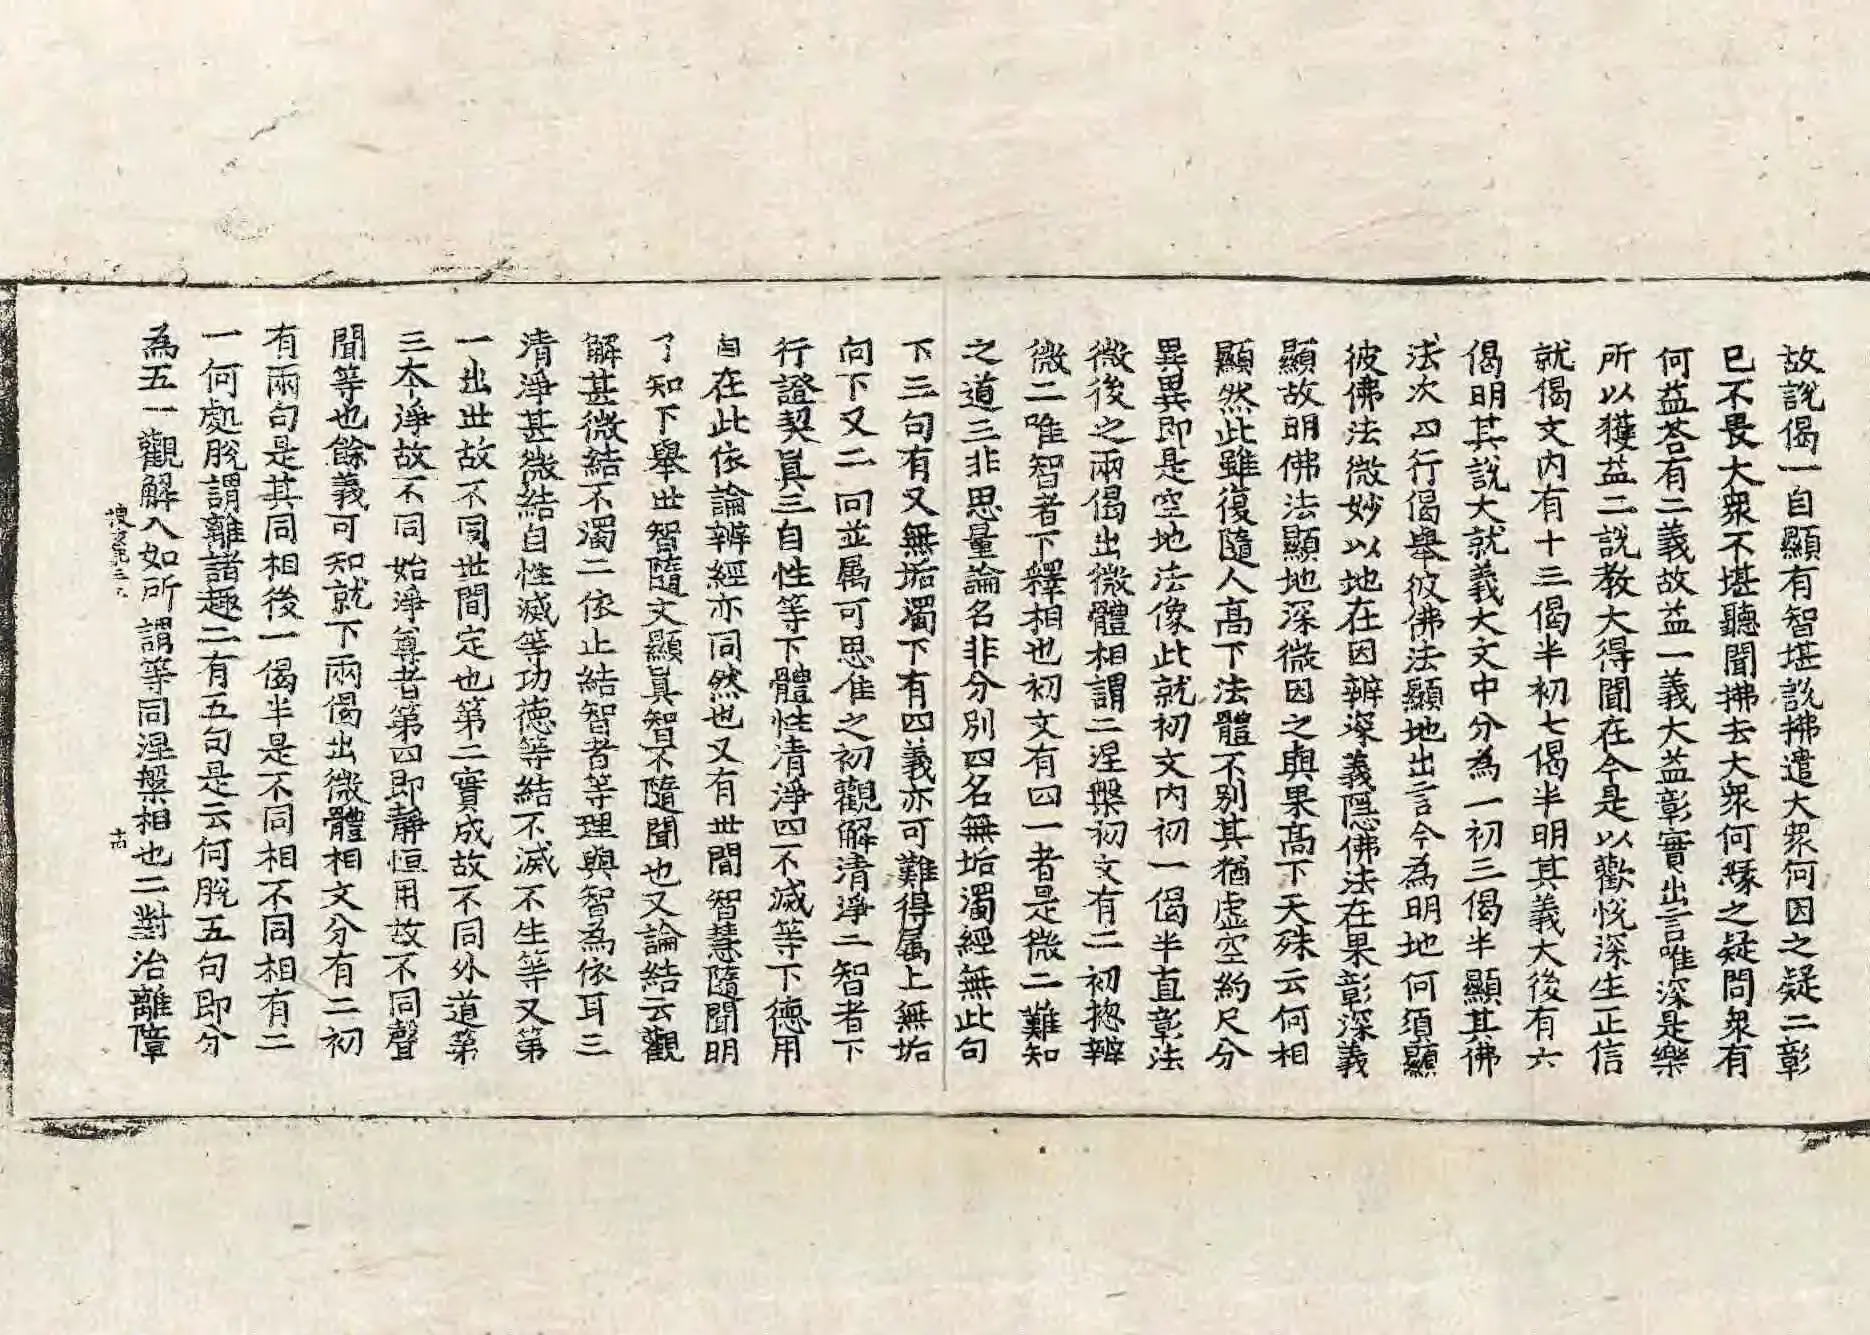 故說偈一自顯有智堪說拂遣大衆何因之疑二彰
已不畏大衆不堪聽聞拂去大衆何緣之疑問衆有
何益荅有二義故益一義大益彰實出言唯深是樂
所以獲益二說教大得聞在今是以歡悅深生正信
就偈文內有十三偈半初七偈半明其義大後有六
偈明其說大就義大文中分為一初三偈半顯其佛
法次四行偈舉彼佛法顯地出言今為明地何須顯
彼佛法微妙以地在因辨深義隱佛法在果彰深義
顯故明佛法顯地深微因之與果高下天殊云何相
顯然此雖復隨人高下法體不別其猶虛空約尺分
異異即是空地法像此就初文內初一偈半直彰法
微後之兩偈出微體相謂二涅槃初文有二初揔辨
微二唯智者下釋相也初文有四一者是微二難知
之道三非思量論名非分別四名無垢濁經無此句
下三句有又無垢濁下有四義亦可難得属上無垢
向下又二向並属可思准之初觀解清淨二智者下
行證契真三自性等下體性清淨四不滅等下德用
自在此依論辨經亦同然也又有世間智慧隨聞明
了知下舉世智隨文顯真智不隨聞也又論結云觀
解甚微結不濁二依止結智者等理與智為依耳三
清淨甚微結自性滅等功德等結不滅不生等又第
一出世故不同世間定也第二實成故不同外道第
三本淨故不同始淨尊者第四即靜恒用故不同聲
聞等也餘義可知就下兩偈出微體相文分有二初
有兩句是其同相後一偈半是不同相不同相有二
一何處脫謂離諸趣二有五句是云何脫五句即分
為五一觀解入如所謂等同涅槃相也二對治離障